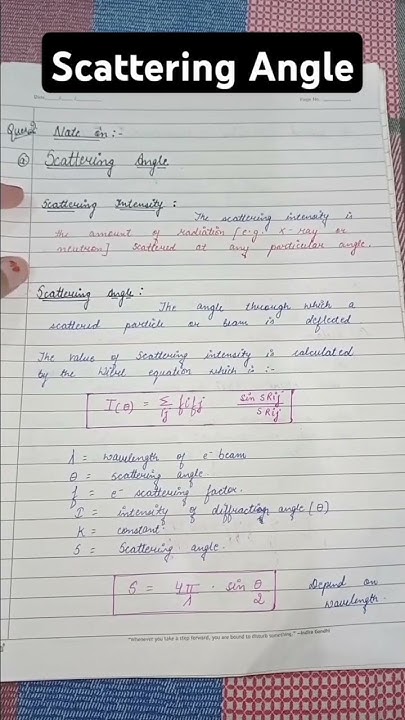 Scattering Angle
Date___/___/___
Page No.
Ques
Note on :-
① Scattering Angle
Scattering Intensity :
The scattering intensity is
the amount of radiation [e.g. x-ray or
neutron] scattered at any particular angle.
Scattering Angle :
The angle through which a
scattered particle or beam is deflected
The value of scattering intensity is calculated
by the Wirl equation which is :-
I(θ) = Σij fifj sin SRij / SRij
λ = wavelength of e⁻ beam
θ = scattering angle.
f = e⁻ scattering factor.
I = intensity of diffraction angle (θ)
K = constant.
S = Scattering angle.
S = 4π/λ . sin θ/2
Depend on
wavelength.
"Whenever you take a step forward, you are bound to disturb something." —Indira Gandhi